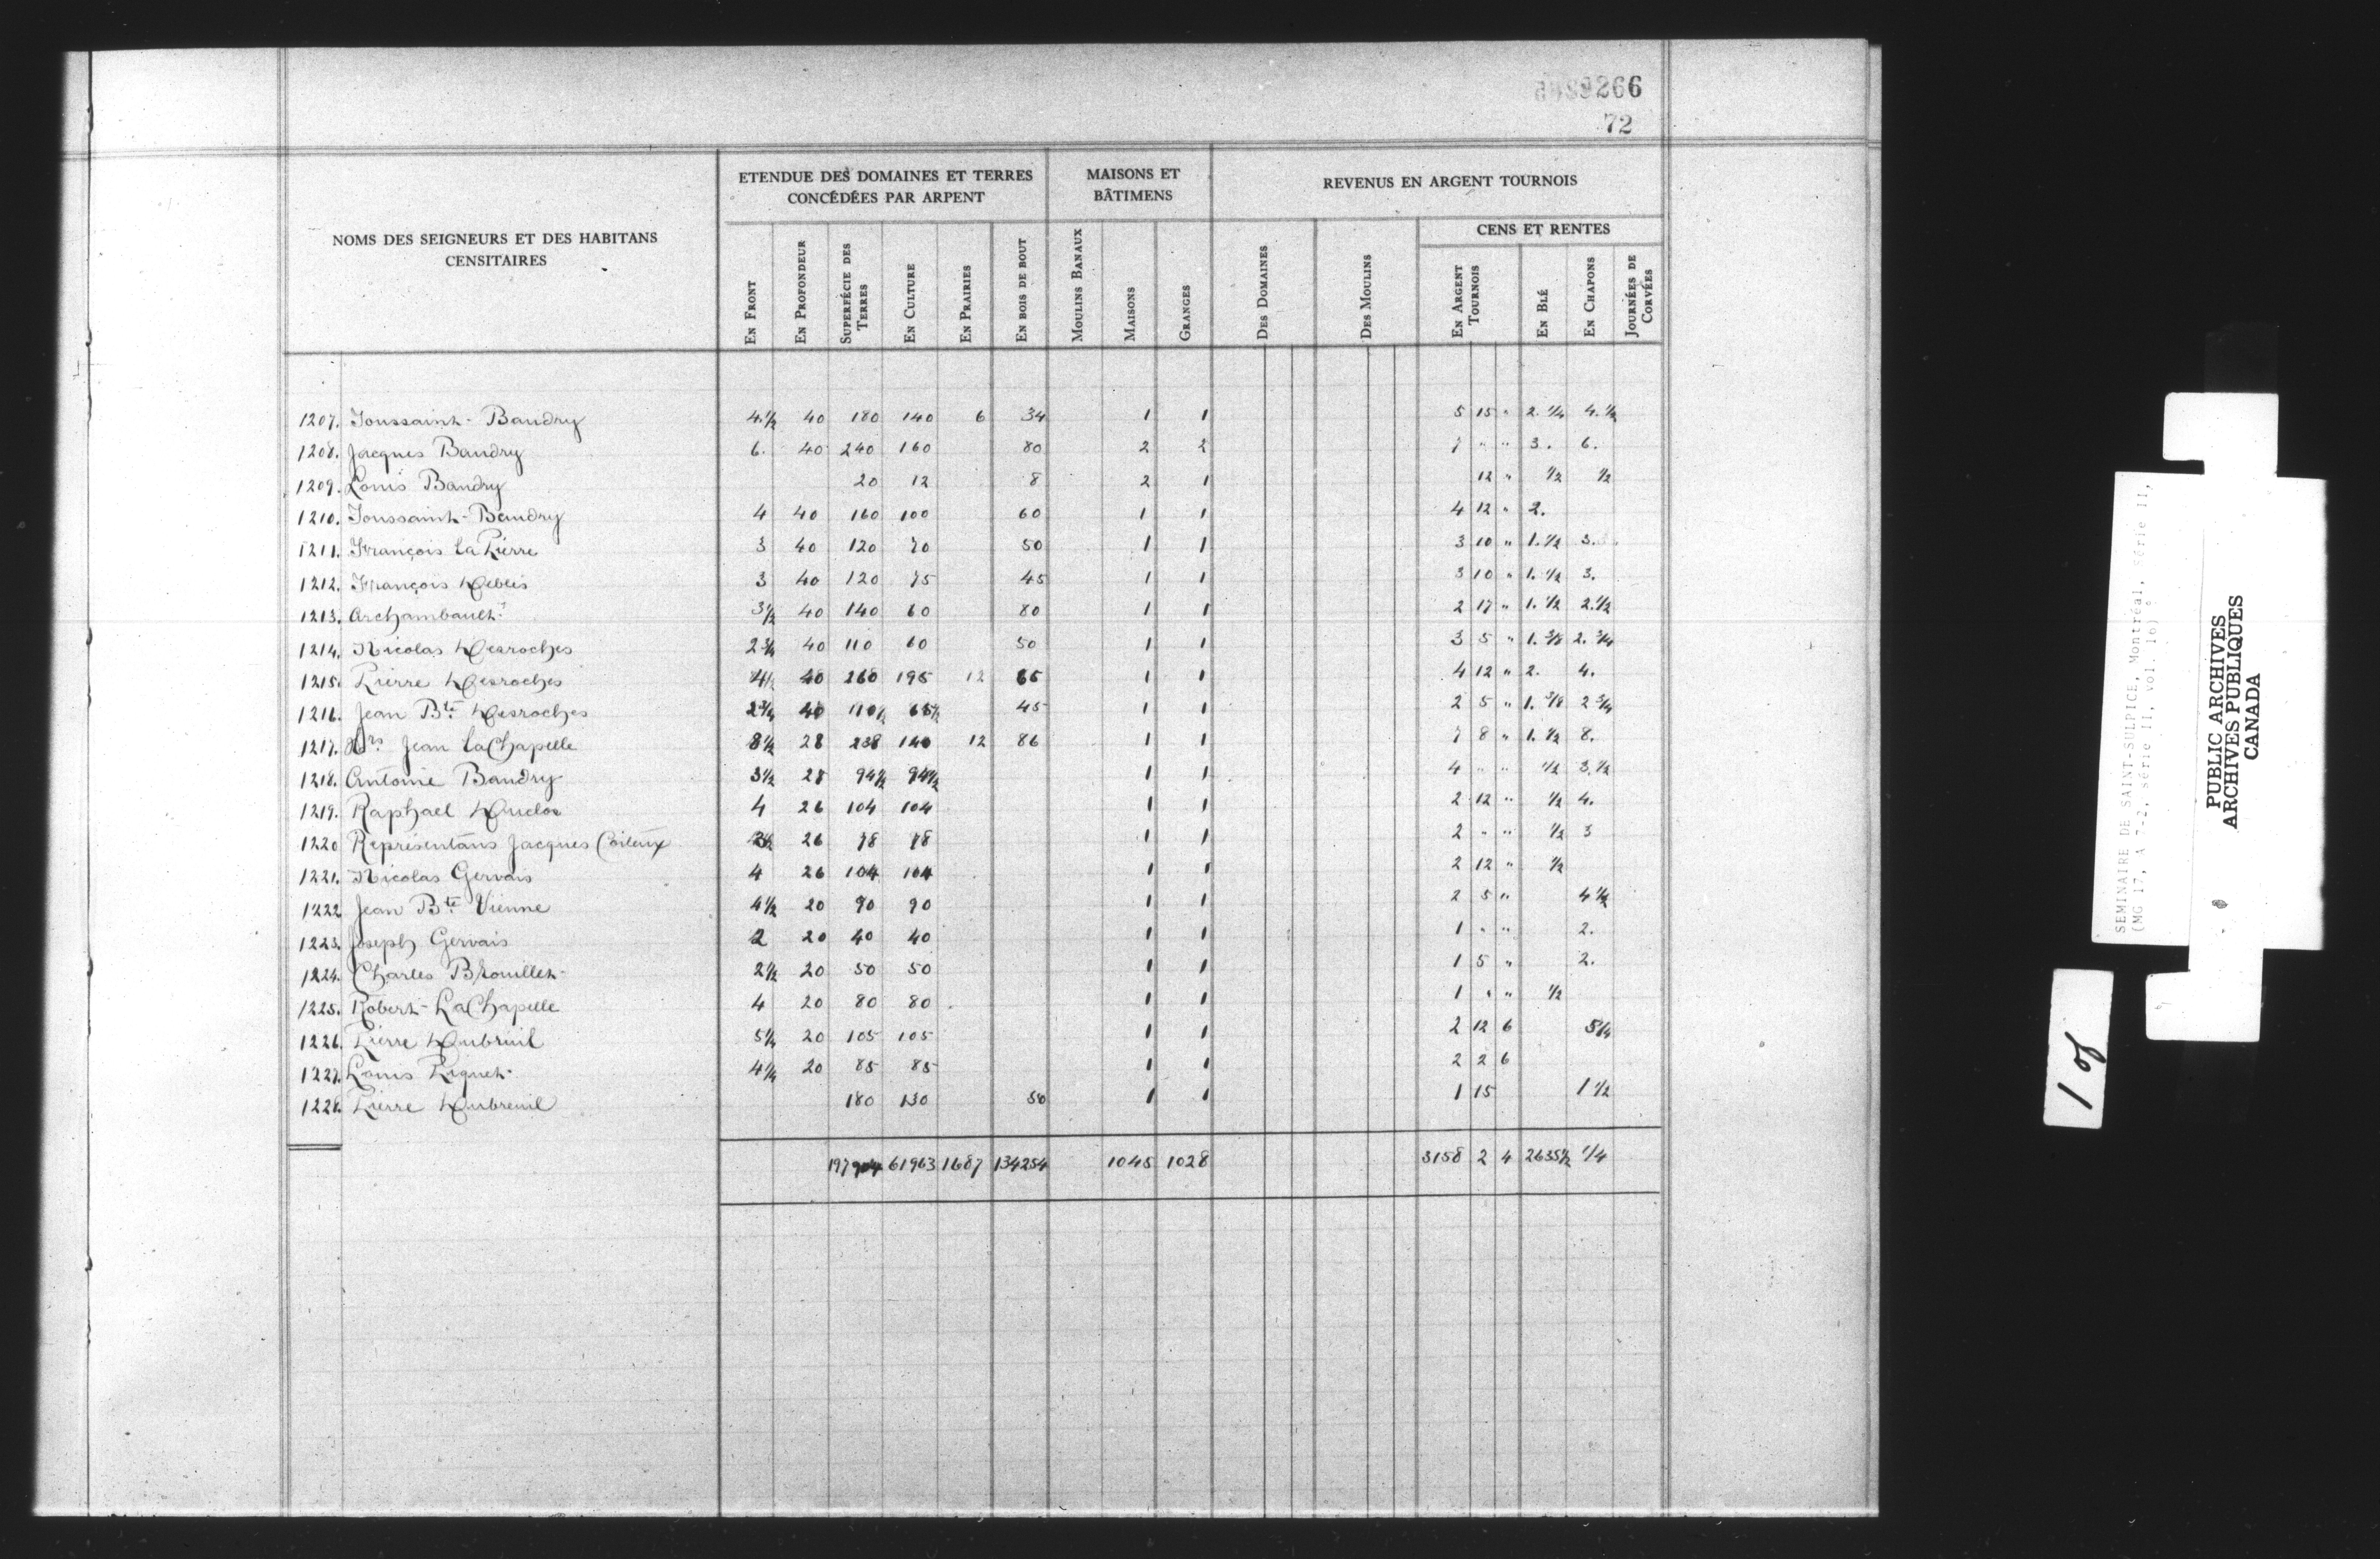 266
72
NOMS DES SEIGNEURS ET DES HABITANS CENSITAIRES
ETENDUE DES DOMAINES ET TERRES CONCÉDÉES PAR ARPENT
MAISONS ET BÂTIMENS
REVENUS EN ARGENT TOURNOIS
CENS ET RENTES
EN FRONT
EN PROFONDEUR
SUPERFÉCIE DES TERRES
EN CULTURE
EN PRAIRIES
EN BOIS DE BOUT
MOULINS BANAUX
MAISONS
GRANGES
DES DOMAINES
DES MOULINS
EN ARGENT TOURNOIS
EN BLÉ
EN CHAPONS
JOURNÉES DE CORVÉES
1207. Toussaint Baudry 4.½ 40 180 140 6 34 1 1 5 15 " 2.¼ 4.½
1208. Jacques Baudry 6. 40 240 160 80 2 2 7 " " 3. 6.
1209. Louis Baudry 20 12 8 2 1 12 " ½ ½
1210. Toussaint Baudry 4 40 160 100 60 1 1 4 12 " 2.
1211. François la Pierre 3 40 120 70 50 1 1 3 10 " 1.½ 3.
1212. François Deblis 3 40 120 75 45 1 1 3 10 " 1.½ 3.
1213. Archambault 3½ 40 140 60 80 1 1 2 17 " 1.½ 2.½
1214. Nicolas Desroches 2¾ 40 110 60 50 1 1 3 5 " 1.⅜ 2.¾
1215. Pierre Desroches 4½ 40 260 195 12 65 1 1 4 12 " 2. 4.
1216. Jean Bte Desroches 2¾ 40 110½ 65½ 45 1 1 2 5 " 1.⅜ 2¾
1217. Hrs Jean laChapelle 8½ 28 238 140 12 86 1 1 7 8 " 1.½ 8.
1218. Antoine Baudry 3½ 28 94½ 94½ 1 1 4 " " ½ 3.½
1219. Raphael Duclos 4 26 104 104 1 1 2 12 " ½ 4.
1220 Représentans Jacques Coiteux 26 78 78 1 1 2 " " ½ 3
1221. Nicolas Gervais 4 26 104 104 1 1 2 12 " ½
1222 Jean Bte Vienne 4½ 20 90 90 1 1 2 5 " 4½
1223. Joseph Gervais 2 20 40 40 1 1 1 " " 2.
1224. Charles Brouillet 2½ 20 50 50 1 1 1 5 " 2.
1225. Robert LaChapelle 4 20 80 80 1 1 1 " " ½
1226. Pierre Dubreuil 5¼ 20 105 105 1 1 2 12 6 5¼
1227. Louis Piquet 4¼ 20 85 85 1 1 2 2 6
1228. Pierre Dubreuil 180 130 50 1 1 1 15 1½
197904 61963 1687 134254 1045 1028 3158 2 4 2635½ ¼
SEMINAIRE DE SAINT-SULPICE, Montréal, série II,
(MG 17, A 7-2, série II, vol. 16)
PUBLIC ARCHIVES
ARCHIVES PUBLIQUES
CANADA